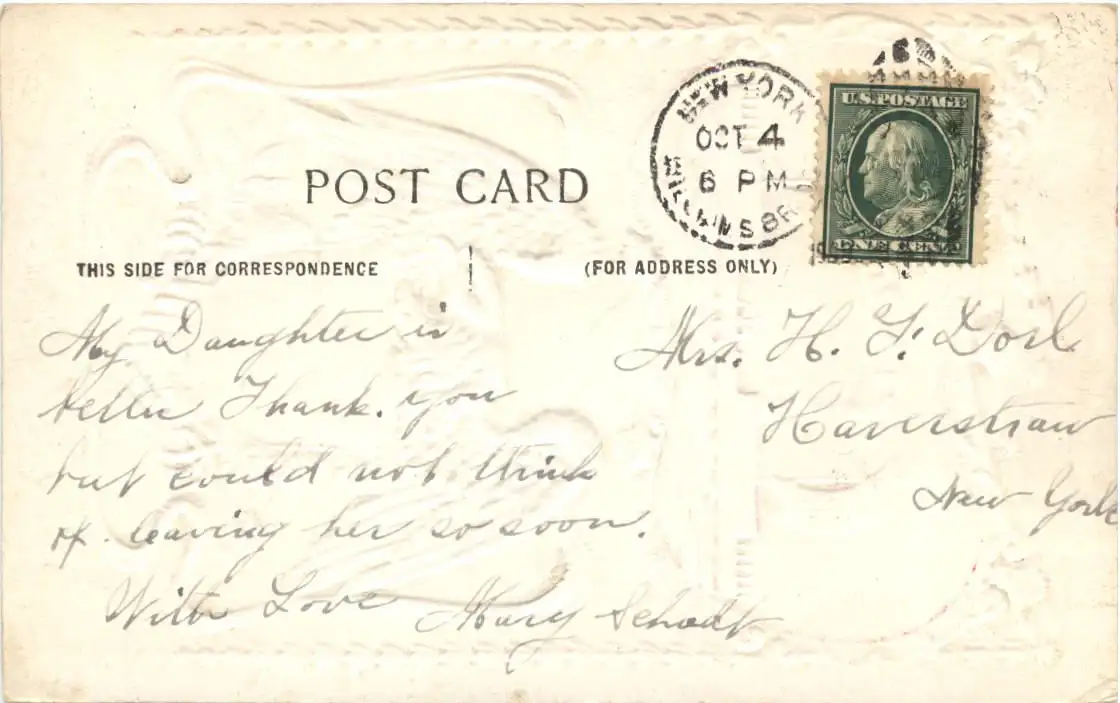 NEW YORK
OCT 4
6 PM
U.S. POSTAGE
ONE CENT
POST CARD
THIS SIDE FOR CORRESPONDENCE
(FOR ADDRESS ONLY)
My Daughter is
better Thank. you
but could not think
of. leaving her so soon.
With Love Mary
Mrs. H. F.
Haverstraw
New York